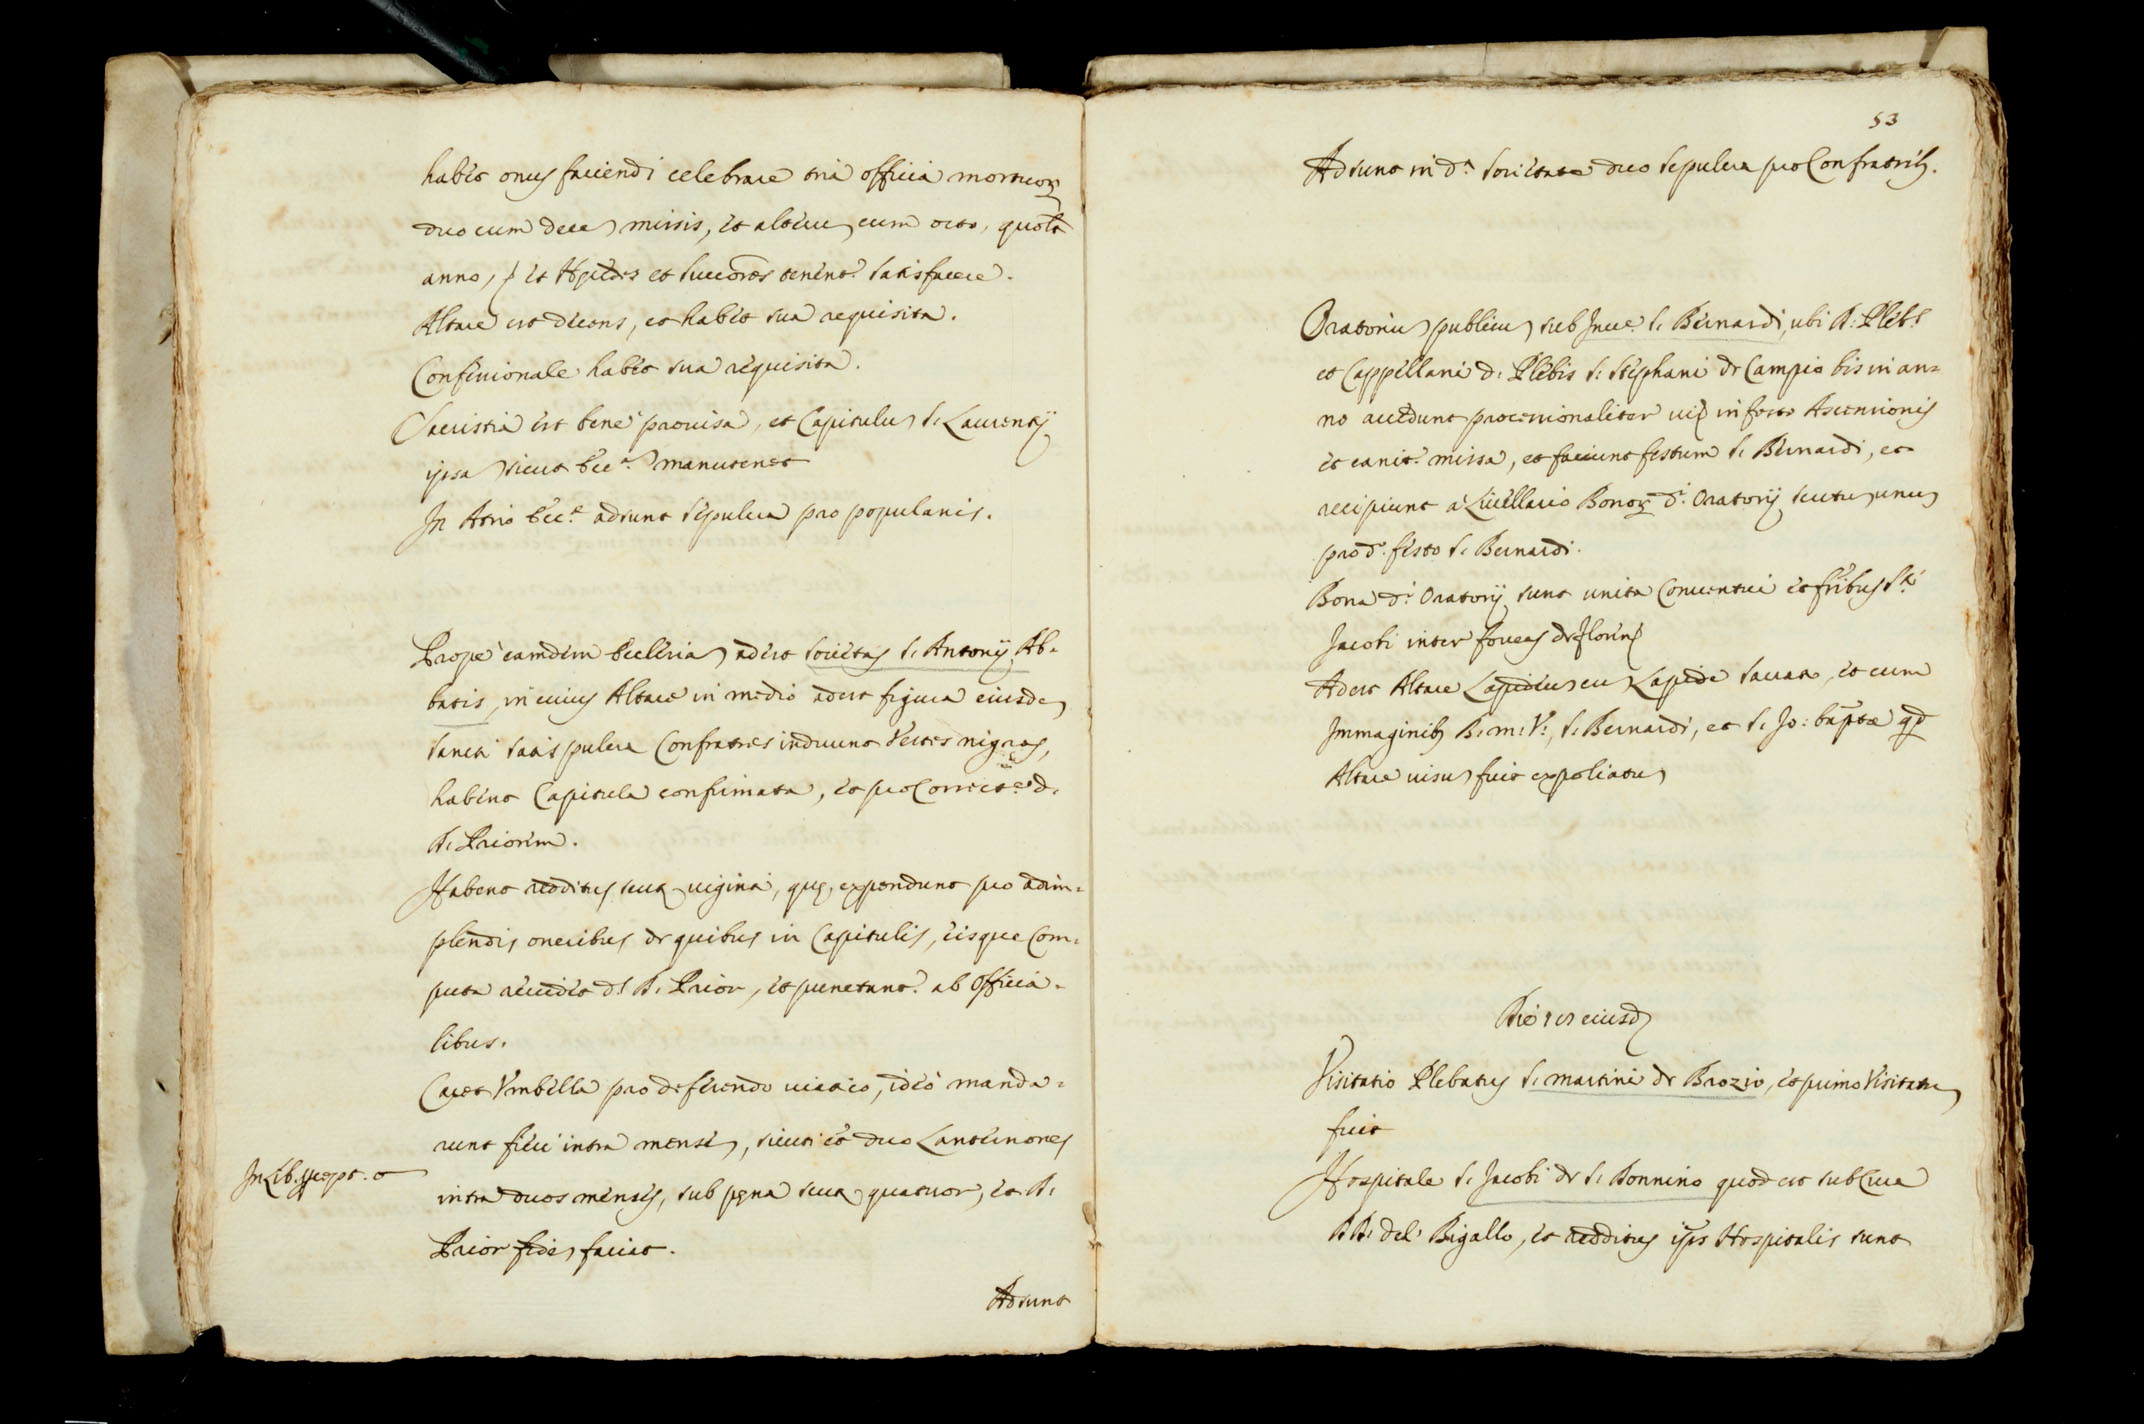 habet onus faciendi celebrare tria officia mortuor
duo cum decē missis, et alterū cum octo, quolt
anno, et Hęredes et Succores tenent.r satisfacere.
Altare est decens, et habet sua requisita.
Confessionale habet sua requisita.
Sacristia est bene provisa, et Capitulū S. Laurentij
ipsā sicut Ecc.ā manutenet
In Atrio Ecc.ę adsunt sepulcra pro popularis.
Prope eamdem Ecclesiā adest Societas S. Antonij Ab=
batis, in cuius Altare in medio adest figura eiusdē
Sancti satis pulcra Confratres induunt Vestes nigras,
habent Capitula confirmata, et pro Correct.e d.
R. Priorem.
Habent redditus scut. viginti, quę expendunt pro adim=
plendis oneribus de quibus in Capitulis, eisque Com=
puta revidet d.s R. Prior, et punctant.r ab Officia=
libus.
Caret Umbella pro deferendo viatico, ideò manda=
runt fieri intra mensē, sicuti et duo Lanternones
intra duos menses, sub pęna scut. quatuor, et R.
In Lib. pręcept. a
Prior fidē faciat.
Adsunt
53
Adsunt in d.a Societate duo sepulcra pro Confratrib.
Oratoriū publicū sub Invc.e S. Bernardi, ubi R. Pleb.s
et Cappellani d. Plebis S. Stephani de Campio bis in an=
no accedunt processionaliter viz in festo Ascensionis
et canit.r missa, et faciunt festum S. Bernardi, et
recipiunt à Livellario Bonor. d.i Oratorij scutū unū
pro d.o festo S. Bernardi.
Bona d.i Oratorij sunt unita Conventui et frībus S.ti
Jacobi inter foveas de Floren.
Adest Altare Lapideū cū Lapide sacrata, et cum
Immaginib. B. M. V., S. Bernardi, et S. Jo: baptæ qd
Altare visū fuit expoliatū
Die 101 eiusd
Visitatio Plebatus S. Martini de Brozio, et primo Visitatū
fuit
Hospitale S. Jacobi de S. Donnino quod est sub Cura
DD. del Bigallo, et redditus ips Hospitalis sunt